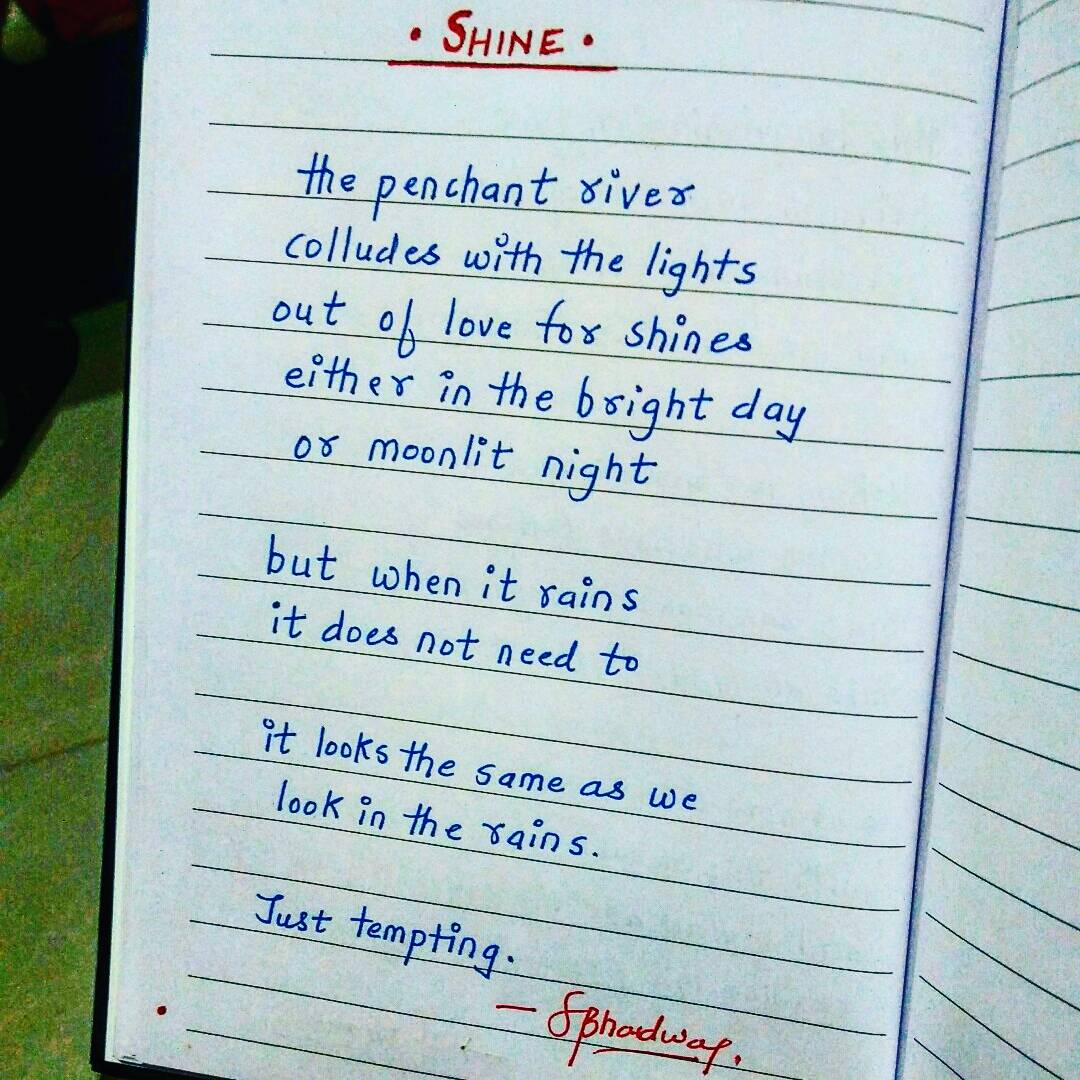 • SHINE •
the penchant river
colludes with the lights
out of love for shines
either in the bright day
or moonlit night
but when it rains
it does not need to
it looks the same as we
look in the rains.
Just tempting.
— SBhadwaj.